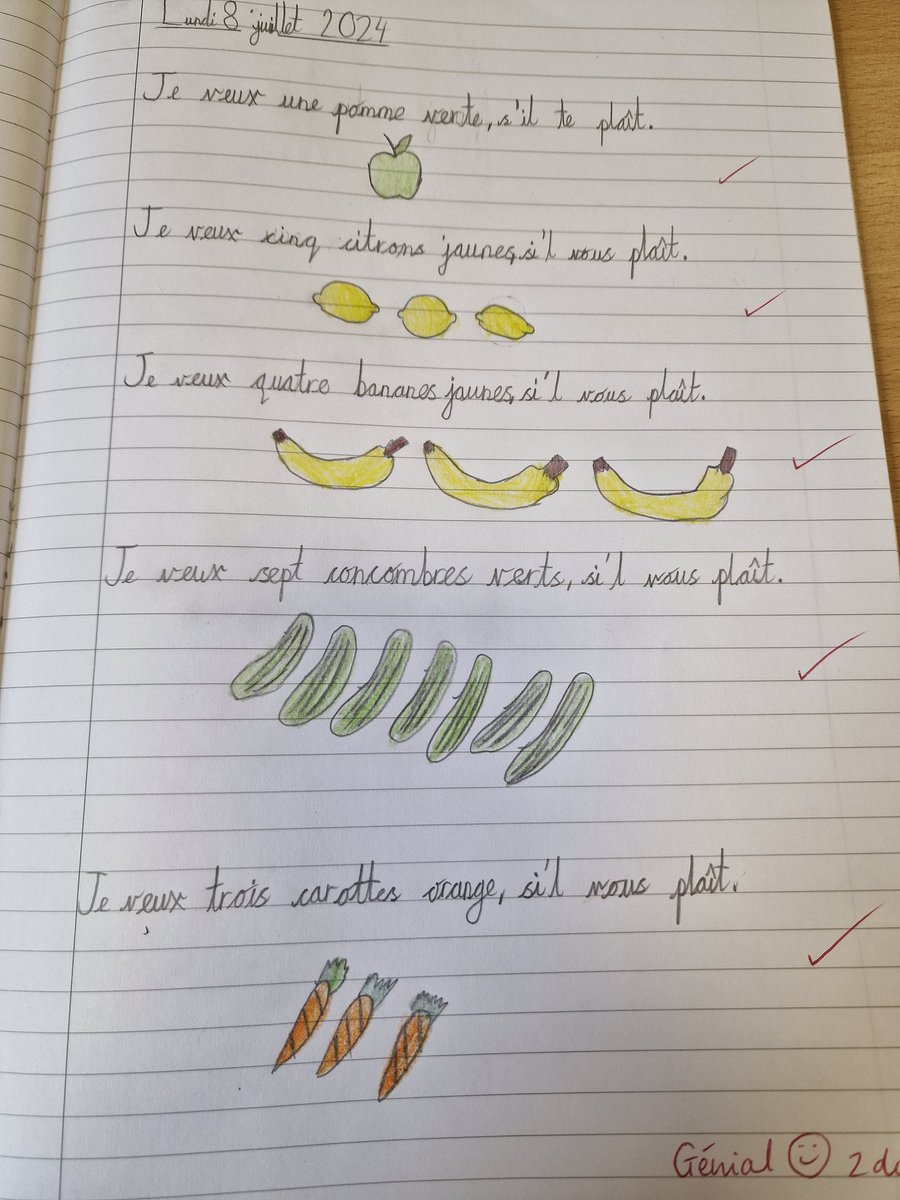 Lundi 8 juillet 2024
Je veux une pomme verte, s'il te plaît.
Je veux cinq citrons jaunes, si'l vous plaît.
Je veux quatre bananes jaunes, si'l vous plaît.
Je veux sept concombres verts, si'l vous plaît.
Je veux trois carottes orange, si'l vous plaît.
Génial 2